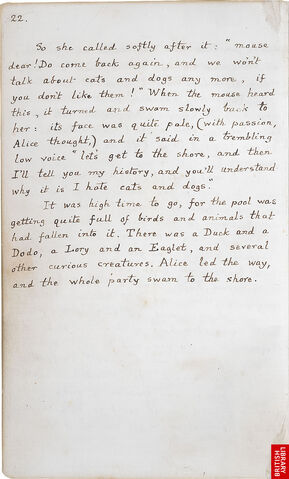 22.
So she called softly after it: "mouse
dear! Do come back again, and we won't
talk about cats and dogs any more, if
you don't like them!" When the mouse heard
this, it turned and swam slowly back to
her: its face was quite pale, (with passion,
Alice thought,) and it said in a trembling
low voice "let's get to the shore, and then
I'll tell you my history, and you'll understand
why it is I hate cats and dogs."
It was high time to go, for the pool was
getting quite full of birds and animals that
had fallen into it. There was a Duck and a
Dodo, a Lory and an Eaglet, and several
other curious creatures. Alice led the way,
and the whole party swam to the shore.
BRITISH
LIBRARY